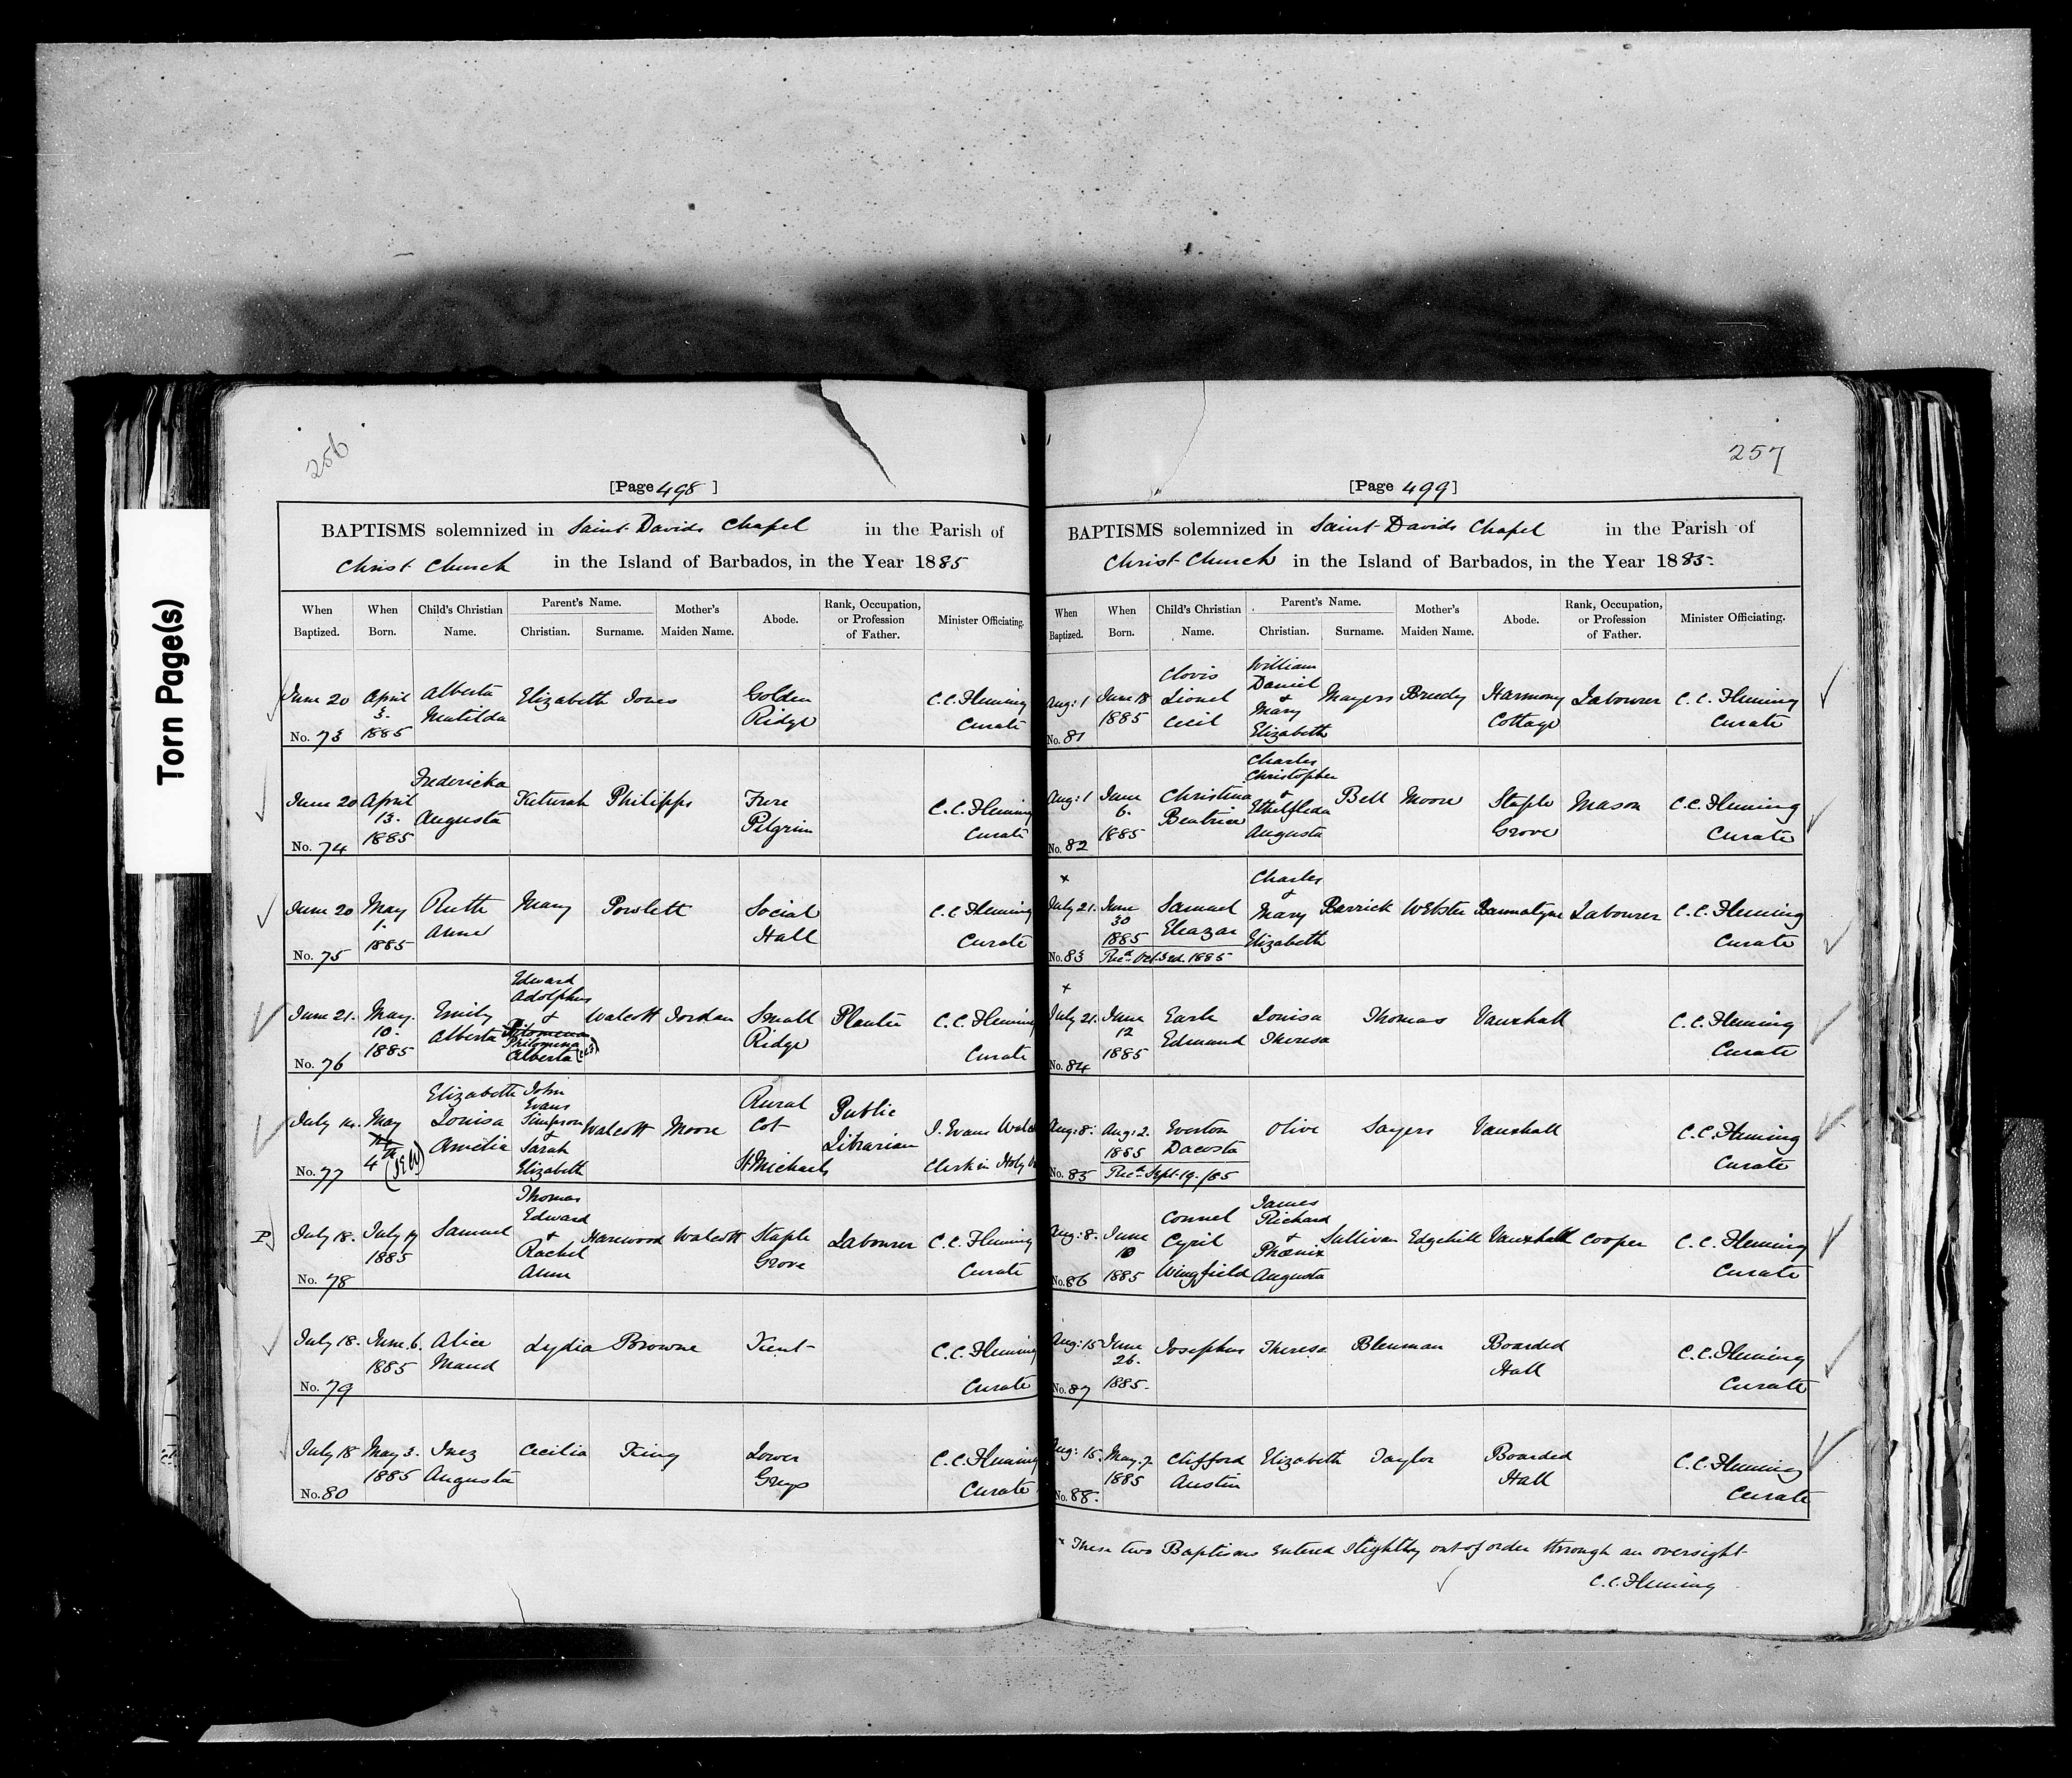 Torn Page(s)
256
[Page 498 ]
BAPTISMS solemnized in Saint Davids Chapel in the Parish of
Christ Church in the Island of Barbados, in the Year 1885
When Baptized. When Born. Child's Christian Name. Parent's Name. Christian. Surname. Mother's Maiden Name. Abode. Rank, Occupation, or Profession of Father. Minister Officiating.
June 20 April 3. 1885 Alberta Matilda Elizabeth Jones Golden Ridge C.C. Fleming Curate
No. 73
June 20 April 13. 1885 Fredericka Augusta Keturah Philipps Fure Pilgrim C.C. Fleming Curate
No. 74
June 20 May 1. 1885 Ruth Anne Mary Powlett Social Hall C.C Fleming Curate
No. 75
June 21. May. 10. 1885 Emily Alberta Edward Adolphus & Alberta Walcott Jordan Small Ridge Planter C.C. Fleming Curate
No. 76
July 14. May 4th (JEW) Elizabeth Louisa Amelia John Evans Simpson & Sarah Elizabeth Walcott Moore Rural Cot St Michaels Public Librarian J. Evans Clerk in Holy
No. 77
P
July 18. July 17 1885 Samuel Thomas Edward & Rachel Anne Harewood Walcott Staple Grove Labourer C.C. Fleming Curate
No. 78
July 18. June 6. 1885 Alice Maud Lydia Browne Kent C.C. Fleming Curate
No. 79
July 18 May 3. 1885 Inez Augusta Cecilia King Lower Greys C.C. Fleming Curate
No. 80
257
[Page 499]
BAPTISMS solemnized in Saint Davids Chapel in the Parish of
Christ Church in the Island of Barbados, in the Year 1885.
When Baptized. When Born. Child's Christian Name. Parent's Name. Christian. Surname. Mother's Maiden Name. Abode. Rank, Occupation, or Profession of Father. Minister Officiating.
Aug: 1 June 18 1885 Clovis Lionel Cecil William Daniel & Mary Elizabeth Mayers Breedy Harmony Cottage Labourer C.C. Fleming Curate
No. 81
Aug: 1 June 6. 1885 Christina Beatrice Charles Christopher & Ethelfleda Augusta Bell Moore Staple Grove Mason C.C. Fleming Curate
No. 82
x
July 21. June 30 1885 Samuel Eleazar Charles & Mary Elizabeth Barrick Webster Bannatyne Labourer C.C. Fleming Curate
No. 83 Recd Oct 3rd. 1885
x
July 21. June 12 1885 Earle Edmund Louisa Theresa Thomas Vauxhall C.C. Fleming Curate
No. 84
Aug: 8. Aug: 2. 1885 Everton Dacosta Olive Sayers Vauxhall C.C. Fleming Curate
No. 85 Recd Sept. 19. /85
Aug: 8. June 10 1885 Connel Cyril Wingfield James Richard & Phœnix Augusta Sullivan Edgehill Vauxhall Cooper C.C. Fleming Curate
No. 86
Aug: 15 June 26. 1885. Josephus Theresa Blenman Boarded Hall C.C. Fleming Curate
No. 87
Aug: 15. May. 7. 1885 Clifford Austin Elizabeth Taylor Boarded Hall C.C. Fleming Curate
No. 88.
x These two Baptisms entered slightly out of order through an oversight
C.C. Fleming